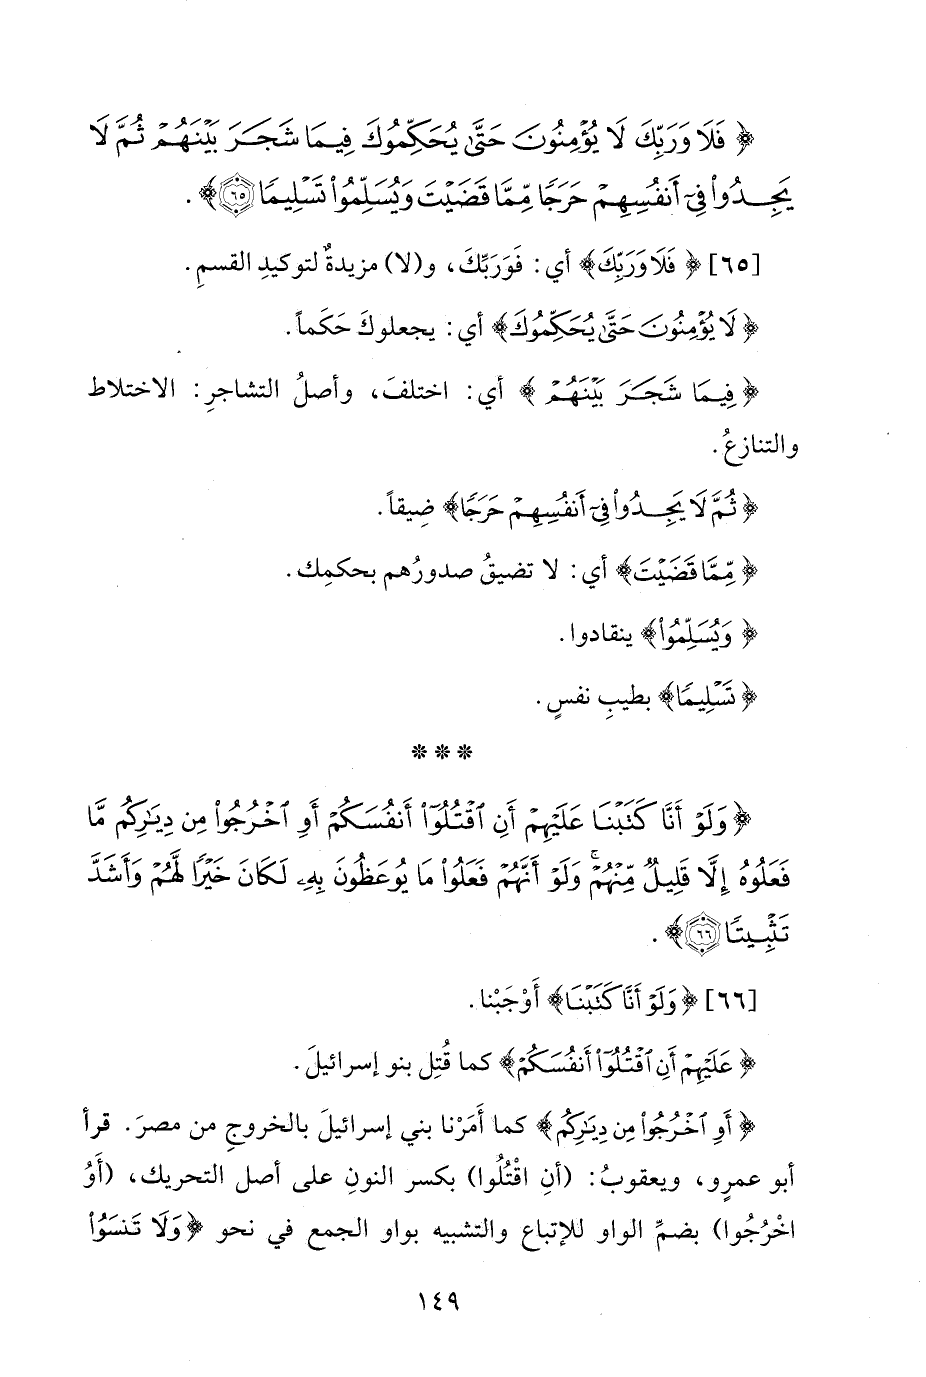 ﴿ فَلَا وَرَبِّكَ لَا يُؤْمِنُونَ حَتَّىٰ يُحَكِّمُوكَ فِيمَا شَجَرَ بَيْنَهُمْ ثُمَّ لَا
يَجِدُوا۟ فِىٓ أَنفُسِهِمْ حَرَجًا مِّمَّا قَضَيْتَ وَيُسَلِّمُوا۟ تَسْلِيمًا ٦٥ ﴾ .
[٦٥] ﴿ فَلَا وَرَبِّكَ ﴾ أي: فَوَرَبِّكَ، و(لا) مزيدةٌ لتوكيدِ القسمِ.
﴿ لَا يُؤْمِنُونَ حَتَّىٰ يُحَكِّمُوكَ ﴾ أي: يجعلوكَ حَكَماً.
﴿ فِيمَا شَجَرَ بَيْنَهُمْ ﴾ أي: اختلفَ، وأصلُ التشاجرِ: الاختلاط
والتنازعُ.
﴿ ثُمَّ لَا يَجِدُوا۟ فِىٓ أَنفُسِهِمْ حَرَجًا ﴾ ضِيقاً.
﴿ مِّمَّا قَضَيْتَ ﴾ أي: لا تضيقُ صدورُهم بحكمِك.
﴿ وَيُسَلِّمُوا۟ ﴾ ينقادوا.
﴿ تَسْلِيمًا ﴾ بطيبِ نفسٍ.
* * *
﴿ وَلَوْ أَنَّا كَتَبْنَا عَلَيْهِمْ أَنِ ٱقْتُلُوٓا۟ أَنفُسَكُمْ أَوِ ٱخْرُجُوا۟ مِن دِيَٰرِكُم مَّا
فَعَلُوهُ إِلَّا قَلِيلٌ مِّنْهُمْ ۚ وَلَوْ أَنَّهُمْ فَعَلُوا۟ مَا يُوعَظُونَ بِهِۦ لَكَانَ خَيْرًا لَّهُمْ وَأَشَدَّ
تَثْبِيتًا ٦٦ ﴾ .
[٦٦] ﴿ وَلَوْ أَنَّا كَتَبْنَا ﴾ أَوْجَبْنا.
﴿ عَلَيْهِمْ أَنِ ٱقْتُلُوٓا۟ أَنفُسَكُمْ ﴾ كما قُتِل بنو إسرائيلَ.
﴿ أَوِ ٱخْرُجُوا۟ مِن دِيَٰرِكُم ﴾ كما أَمَرْنا بني إسرائيلَ بالخروجِ من مصرَ. قرأ
أبو عمرٍو، ويعقوبُ: (أَنِ اقْتُلُوا) بكسر النونِ على أصل التحريك، (أَوُ
اخْرُجُوا) بضمِّ الواو للإتباع والتشبيه بواو الجمع في نحو ﴿ وَلَا تَنسَوُا۟
١٤٩